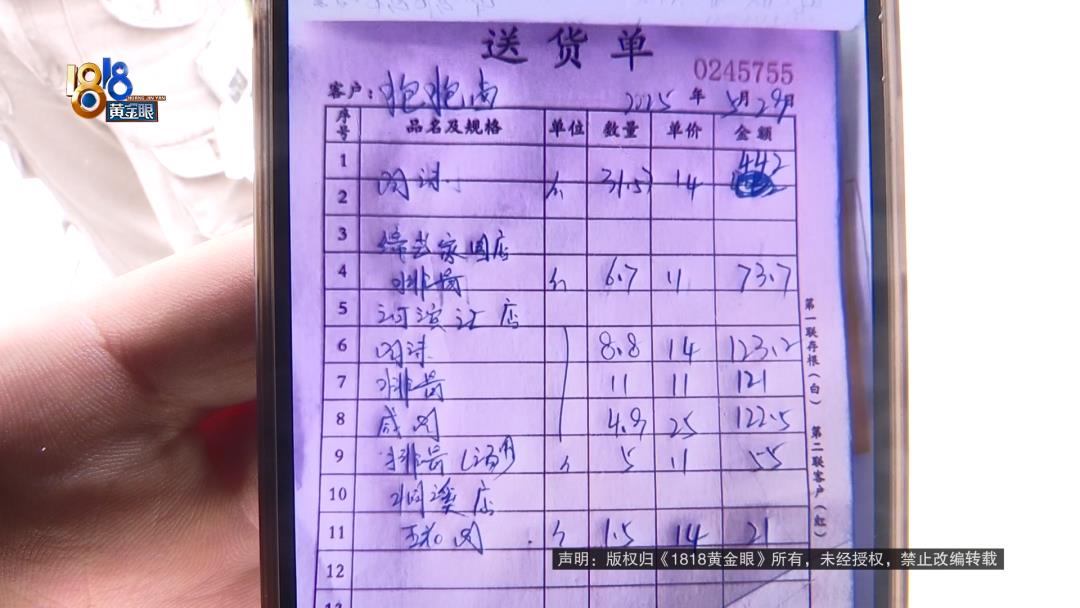 1818
HUANG JIN YAN
黄金眼
送货单
0245755
客户：抱抱肉 2025年5月29日
序号 品名及规格 单位 数量 单价 金额
1 442
2 14
3 店
4 排骨 6.7 11 73.7
5 店
6 8.8 14 123.2
7 排骨 11 11 121
8 咸肉 4.9 25 122.5
9 排骨（汤用） 5 11 55
10 店
11 五花肉 1.5 14 21
12
13
第一联存根（白）
第二联客户（红）
声明：版权归《1818黄金眼》所有，未经授权，禁止改编转载